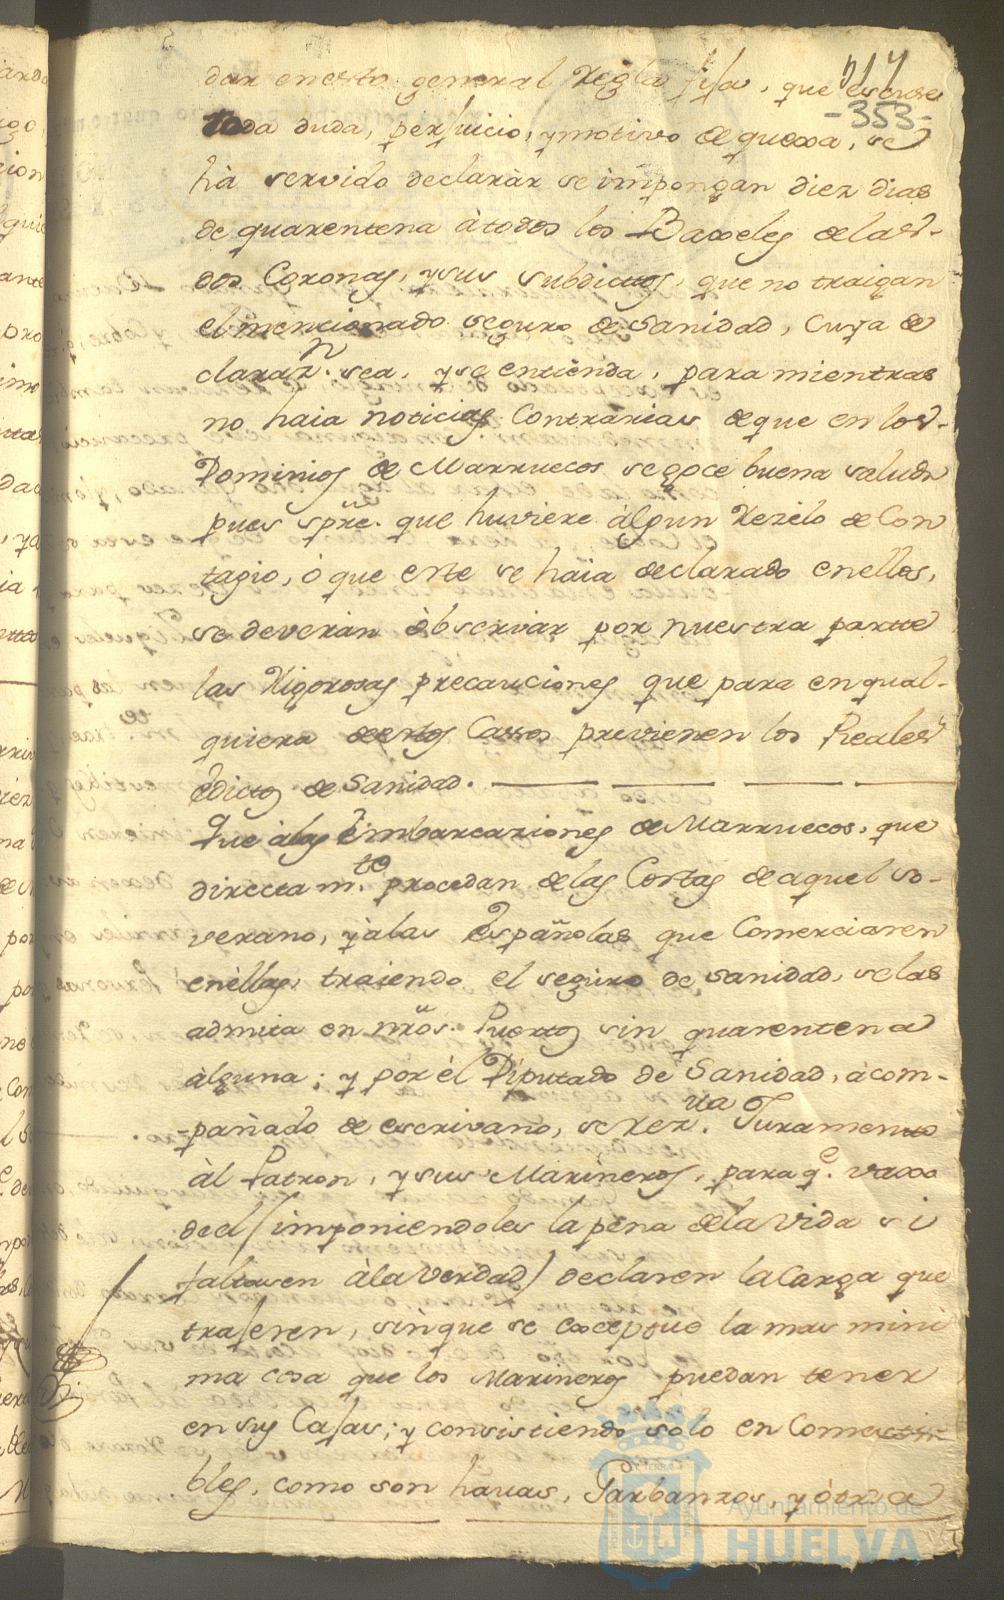 317
-353-
dar en esto general Regla fija, que escuse
toda duda, perjuicio, y motivo de quexa, se
hà servido declaràr se impongan diez dias
de quarentena àtodos los Baxeles de las
dos Coronas, y sus subditos, que no traigan
el mencionado seguro de Sanidad, cuya de
claraz.n sea, y se entienda, para mientras
no haia noticias contrarias de que en los
Dominios de Marruecos se goce buena salud
pues spre. que huviere àlgun Rezelo de Con
tagio, ò que este se haia declarado en ellos,
se deveràn òbservar por nuestra parte
las Rigorosas precauciones que para en qual-
quiera de estos Cassos previenen los Reales
Edictos de Sanidad.
Que àlas Embarcaziones de Marruecos, que
directam.te procedan de las Costas de aquel so-
verano, y àlas Españolas que Comerciaren
en èllas, traiendo el seguro de Sanidad, se las
admita en nrôs. Puertos sin quarentena
àlguna; y por èl Diputado de Sanidad, àcom-
-pañado de escrivano, se rez.va Juramento
àl Patron, y sus Marineros, para q.e vaxo
de el (imponiendoles la pena de la vida si
faltasen àla Verdad) declaren la Carga que
trajeren, sin que se exceptue la mas mini
ma cosa que los Marineros puedan tener
en sus Cajas; y consistiendo solo en Comesti-
bles, como son havas, Garbanzos, y òtra
Ayuntamiento de
HUELVA